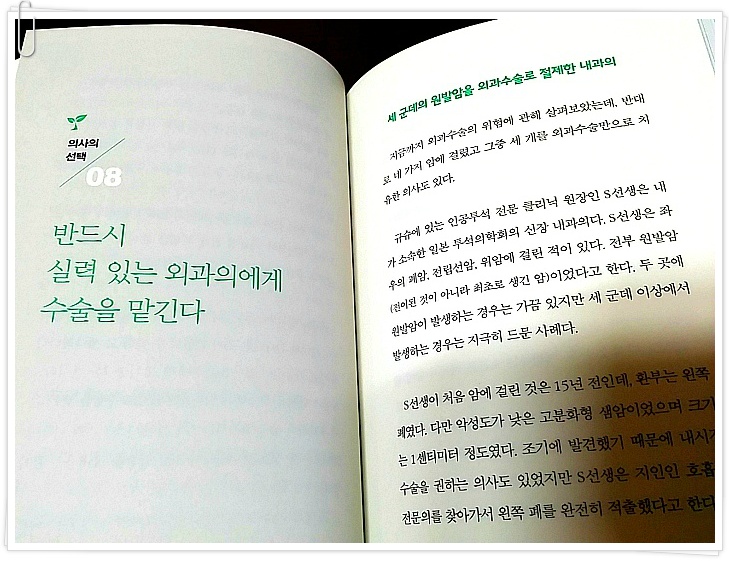 의사의
선택
08
반드시
실력 있는 외과의에게
수술을 맡긴다
세 군데의 원발암을 외과수술로 절제한 내과의
지금까지 외과수술의 위험에 관해 살펴보았는데, 반대
로 네 가지 암에 걸렸고 그중 세 개를 외과수술만으로 치
유한 의사도 있다.
규슈에 있는 인공투석 전문 클리닉 원장인 S선생은 내
가 소속한 일본 투석의학회의 신장 내과의다. S선생은 좌
우의 폐암, 전립선암, 위암에 걸린 적이 있다. 전부 원발암
(전이된 것이 아니라 최초로 생긴 암)이었다고 한다. 두 곳에
원발암이 발생하는 경우는 가끔 있지만 세 군데 이상에서
발생하는 경우는 지극히 드문 사례다.
S선생이 처음 암에 걸린 것은 15년 전인데, 환부는 왼쪽
폐였다. 다만 악성도가 낮은 고분화형 샘암이었으며 크기
는 1센티미터 정도였다. 조기에 발견했기 때문에 내시
수술을 권하는 의사도 있었지만 S선생은 지인인 호흡
전문의를 찾아가서 왼쪽 폐를 완전히 적출했다고 한다